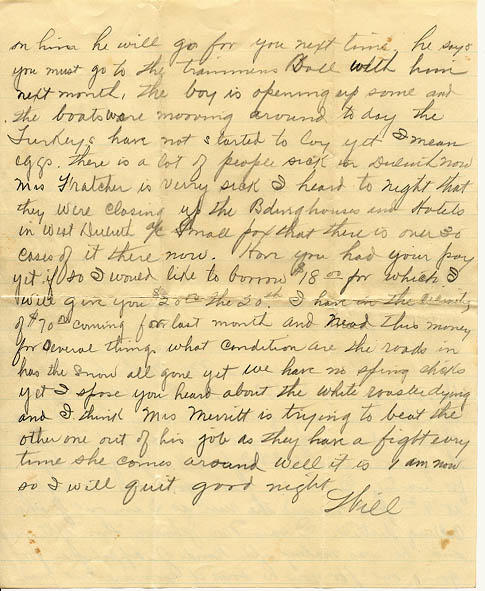 on him he will go for you next time, he says
you must go to the trainmens Ball with him
next month, the boy is opening up some and
the boats were mooving around to day the
Turkeys have not started to lay yet I mean
eggs. there is a lot of people sick in Duluth now
Mrs Fratcher is verry sick I heard to night that
they were closing up the Bdinghouses and Hotels
in West Duluth of Small pox that there is over 30
cases of it there now. Have you had your pay
yet if so I would like to borrow $18 00 for which I
will give you $20 00 the 20th I have in the
of $70 00 coming for last month and need this money
for several things what condition are the roads in
has the snow all gone yet we have no spring chicks
yet I spose you heard about the white rooster dying
and I think Mrs Merritt is trying to beat the
other one out of his job as they have a fight every
time she comes around well it is 1 am now
so I will quit good night
Will